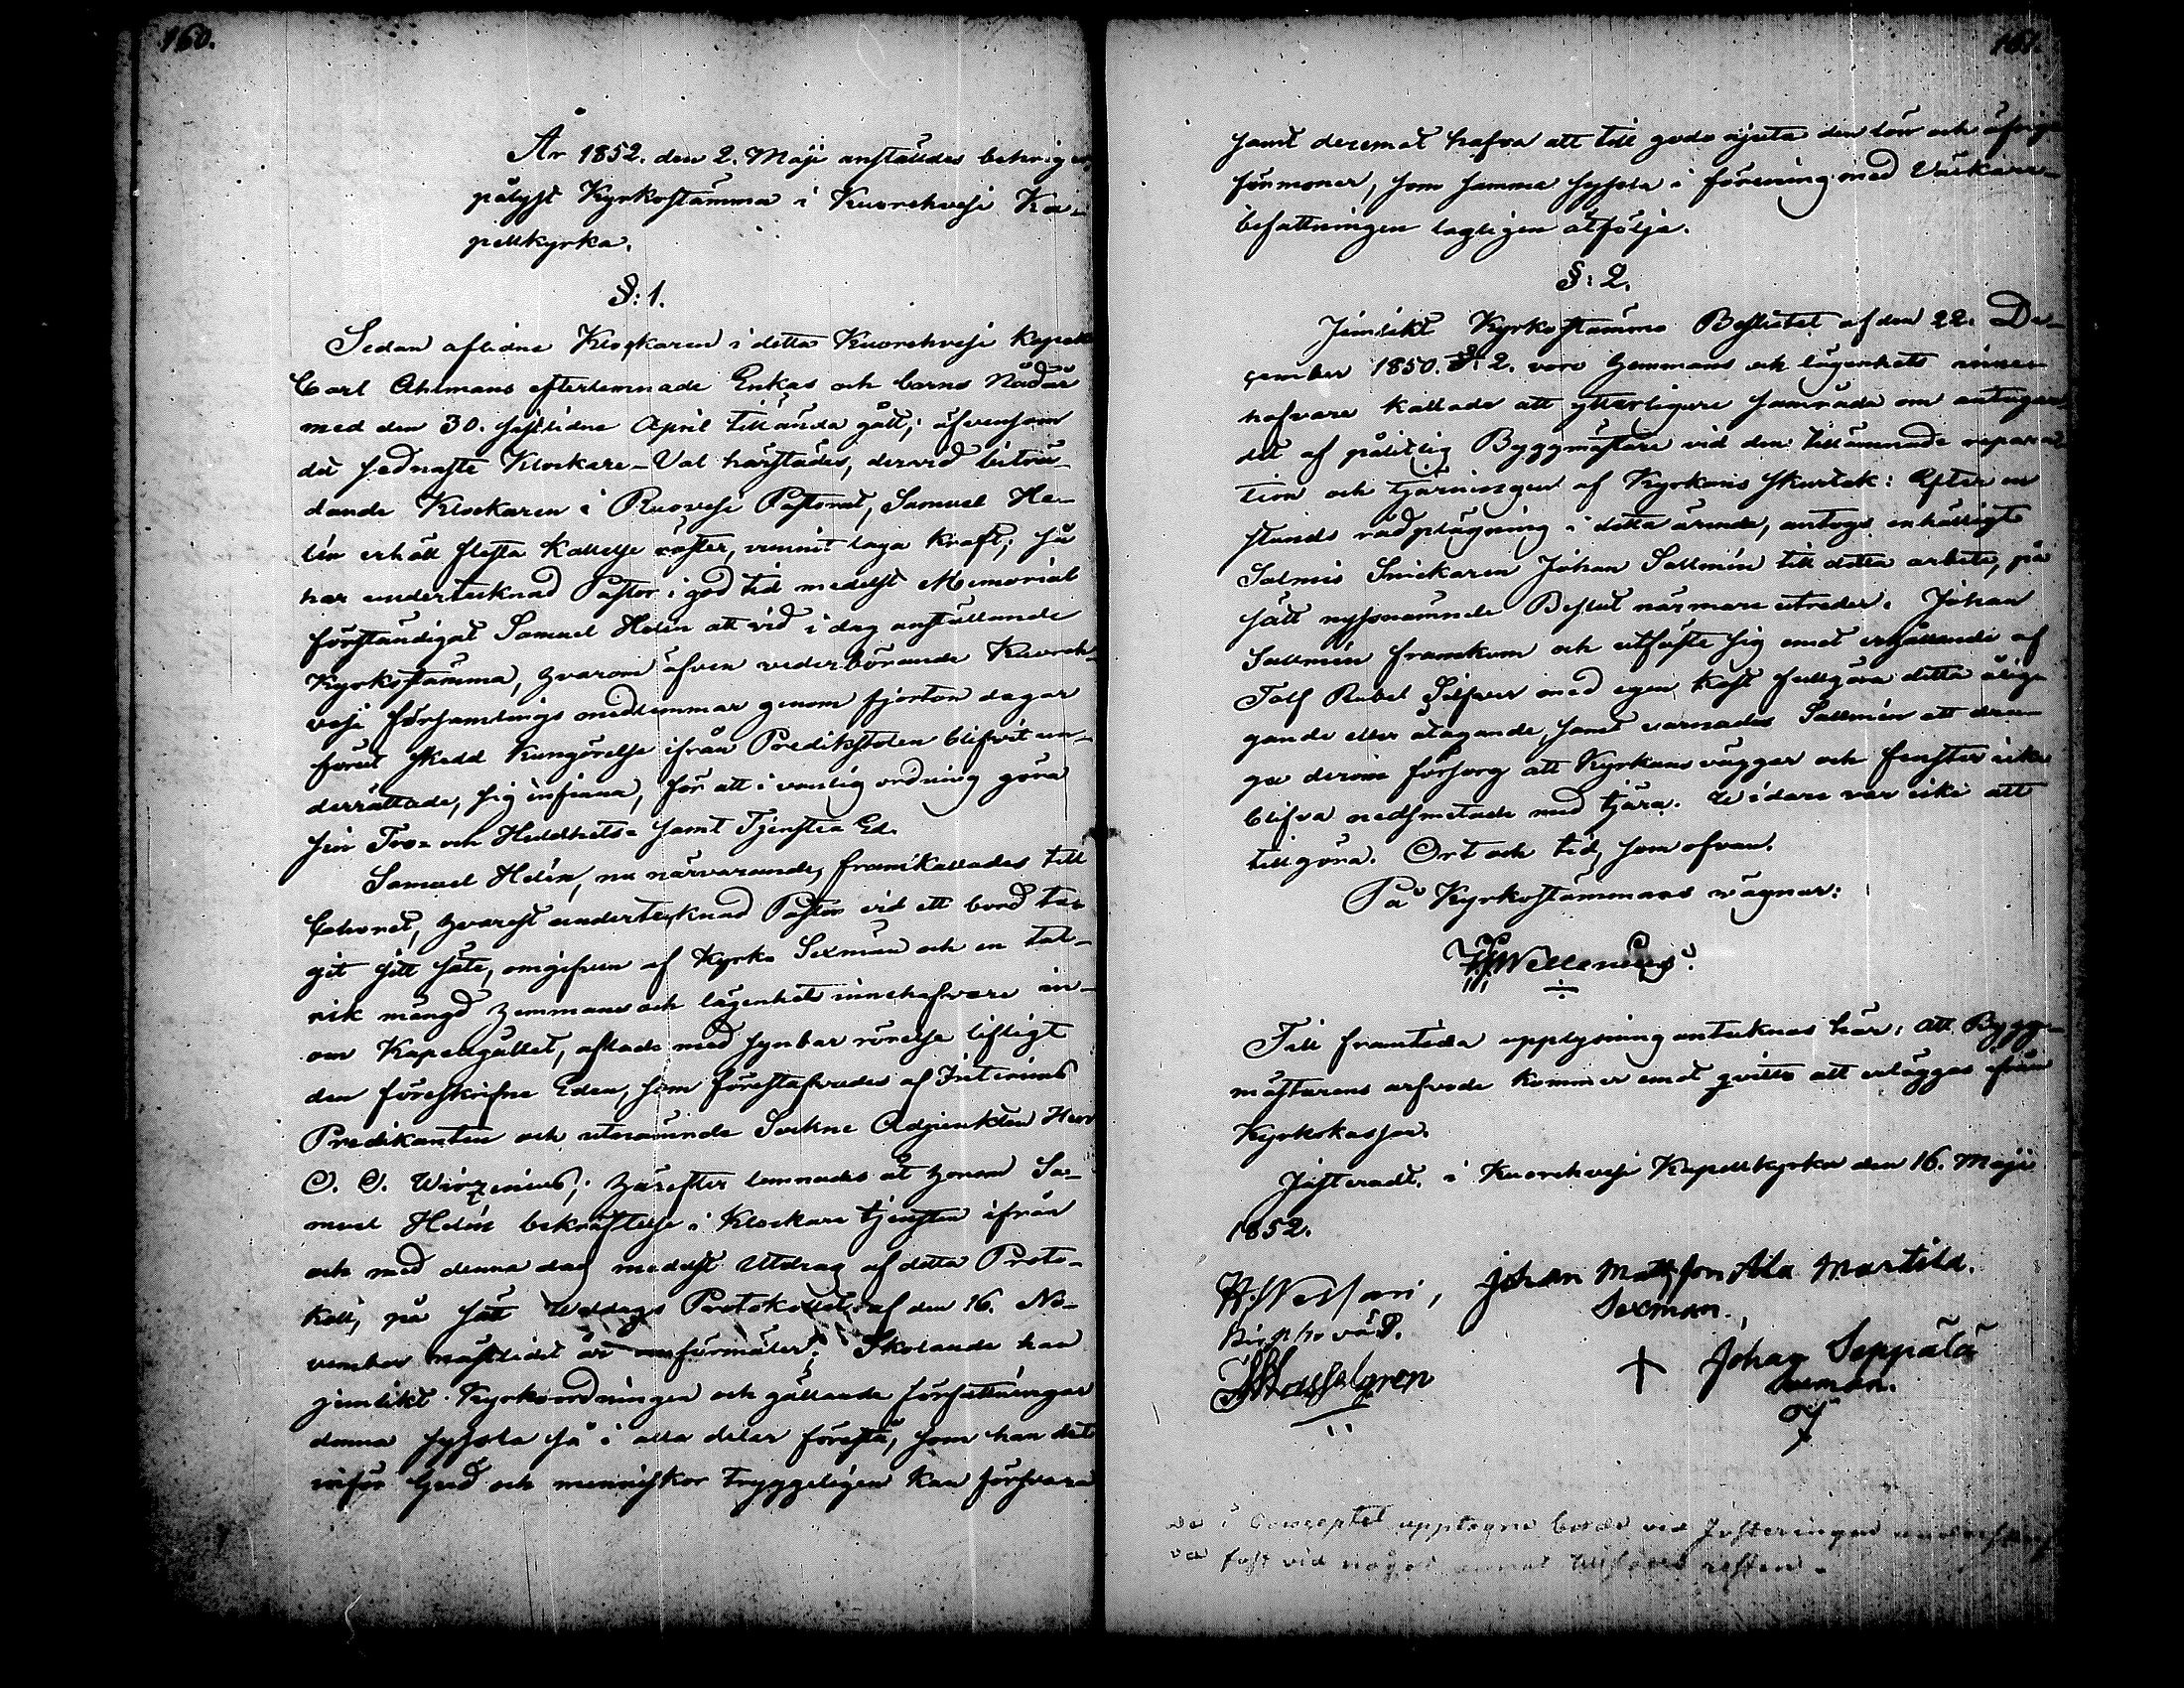 160.
År 1852. den 2. Maji anställdes behörigen
pålyst Kyrkostämma i Kuorehvesi Ka-
pellkyrka.
§: 1.
Sedan aflidne Klockaren i detta Kuorehvesi Kapell
Carl Ahlmans efterlemnade Enkas och barns Nådår
med den 30. sistlidne April tilländagått, äfvensom
det sednaste Klockare-Val härstädes, dervid biträ-
dande Klockaren i Ruovesi Pastorat, Samuel He-
lén erhöll flesta Kallelse röster, vunnit laga kraft; så
har undertecknad Pastor i god tid medelst Memorial
förständigat Samuel Helén att vid i dag anställande
Kyrkostämma, hvarom äfven vederbörande Kuoreh-
vesi församlings medlemmar genom fjorton dagar
förut skedd Kungörelse ifrån Predikstolen blifvit un-
derrättade, sig infinna, för att i vanlig ordning göra
sin Tro- och Huldhets- samt Tjenstea Ed.
Samuel Helén, nu närvarande, framkallades till
Choret, hvarest undertecknad Pastor vid ett bord ta-
git sitt säte, omgifven af Kyrko Sexmän och en tal-
rik mängd Hemmans och lägenhets innehafvare in-
om Kapellgället, aflade med synbar rörelse lifligt
den föreskrifne Eden, som förestafvades af Interims
Predikanten och utnämnde Sockne Adjunkten Herr
O. O. Wirzenius; härefter lemnades åt honom Sa-
muel Helén bekräftelse i Klockare tjensten ifrån
och med denna dag medelst Utdrag af detta Proto-
koll, på sätt Wallags Protokollet af den 16. No-
vember nästlidet år omförmäler; Skolande han
jemlikt Kyrkoordningen och gällande författningar
denna syssla så i alla delar förestå, som han det
inför Gud och menniskor tryggeligen kan försvara
161.
samt deremot hafva att till godo njuta den lön och öfriga
förmoner, som samma syssla i förening med Väckare-
befattningen lagligen åtfölja.
§: 2.
Jemlikt Kyrkostämmo Beslutet af den 22. De-
cember 1850. §: 2. voro Hemmans och lägenhets inne-
hafvare kallade att ytterligare samråda om antagan-
det af pålitlig Byggmästare vid den tillämnade repara-
tion och tjärningen af Kyrkans skurtak: Efter en
stunds rådplägning i detta ärende, antogs enhälligt
Salmis Snickaren Johan Sallmén till detta arbete, på
sätt nyssnämnde Beslut närmare utreder. Johan
Sallmén framkom och utfäste sig emot erhållande af
Tolf Rubel Silfver med egen kost fullgöra detta ålig-
gande eller åtagande, samt varnades Sallmén att dra-
ga derom försorg att Kyrkans väggar och fenster icke
blifva nedsmetade med tjära. Widare var icke att
tillgöra. Ort och tid, som ofvan.
På Kyrkostämmans vägnar:
Wellenius.
Till framtida upplysning antecknas här: att Bygg-
mästarens arfvode kommer emot qvitto att erläggas från
Kyrkokassan.
Justeradt i Kuorehvesi Kapellkyrka den 16. Maji
1852.
Johan Mattsson Ala Marttila.
Sexman.
Hasselgren
Johan Seppälä
Sexman.